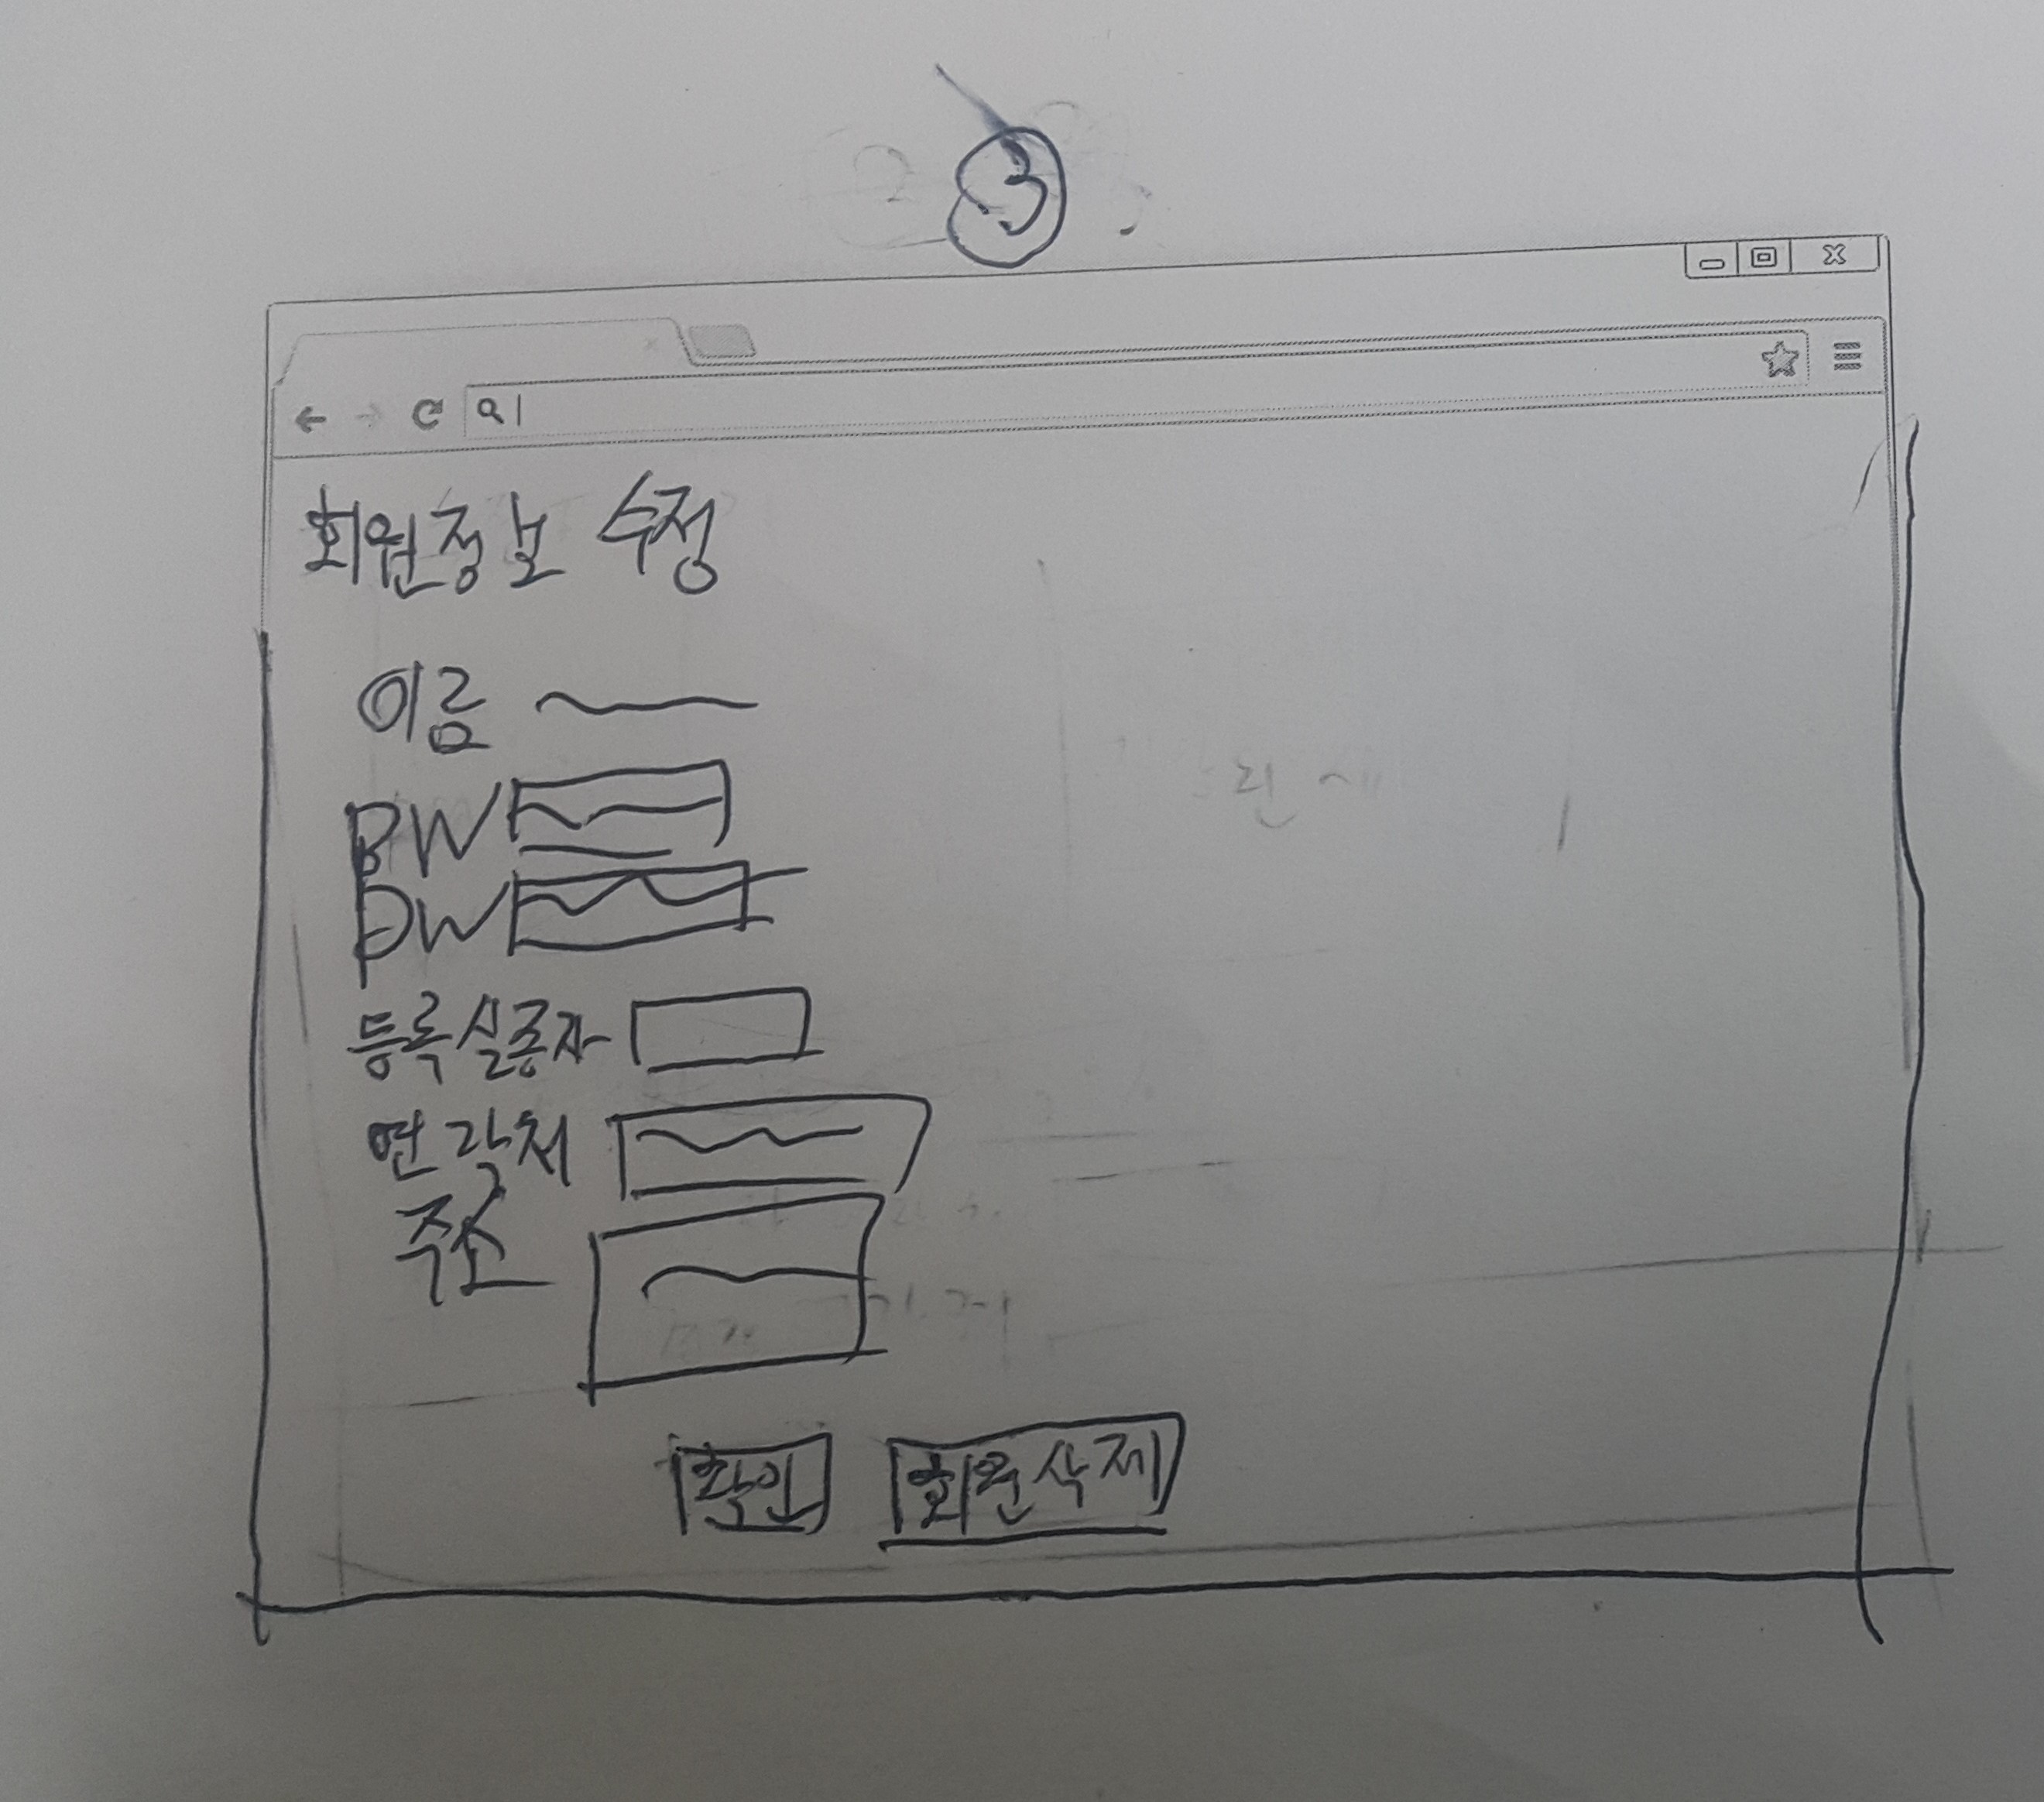 3
회원정보 수정
이름
PW
PW
등록실종자
연락처
주소
확인 회원삭제